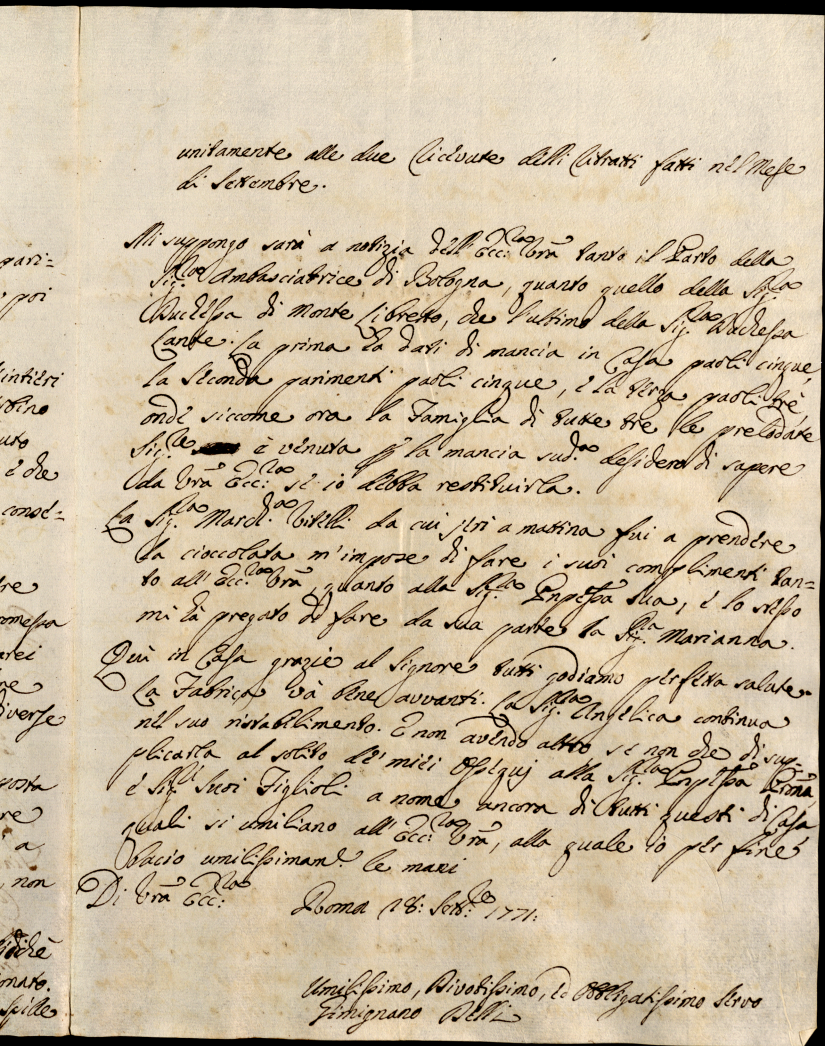 unitamente alle due ricevute delli ritratti fatti nel Mese
di Settembre.
Mi suppongo sarà a notizia dell'Ecc:za Vrã tanto il Parto della
Sig:ra Ambasciatrice di Bologna, quanto quello della Sig:ra
Duchessa di Monte Libretto, che l'ultimo della Sig:ra Duchessa
Lante. La prima hà dati di mancia in Casa paoli cinque,
la seconda parimenti paoli cinque, e la terza paoli trè,
onde siccome ora la Famiglia di tutte tre le prelodate
Sig:re è venuta p la mancia sud:a desidero di sapere
da Vrã Ecc:za se io debba restituirla.
La Sig:ra March:a Vitelli da cui jeri a mattina fui a prendere
la cioccolata m'impose di fare i suoi complimenti tan=
to all'Ecc:za Vrã, quanto alla Sig:ra Pnpessa sua, e lo stesso
mi hà pregato di fare da sua parte la Sig:ra Marianna.
Quì in Casa grazie al Signore tutti godiamo perfetta salute.
La Fabrica và bene avvanti. La Sig:ra Angelica continua
nel suo ristabilimento. E non avendo altro se non che di sup=
plicarla al solito de' miei ossequj alla Sig:ra Pnpessa Pròna,
e Sig:ri suoi Figlioli a nome ancora di tutti questi di Casa
quali si umiliano all'Ecc:za Vrã, alla quale io per fine
bacio umilissimam:e le mani
Di Vrã Ecc:za
Roma 28: Sett:bre 1771:
Umilissimo, Divotissimo, ed Obbligatissimo Servo
Gimignano Belli
pari=
poi
e che
conse=
re
arei
ne
diverse
posta
re
a
non
spille